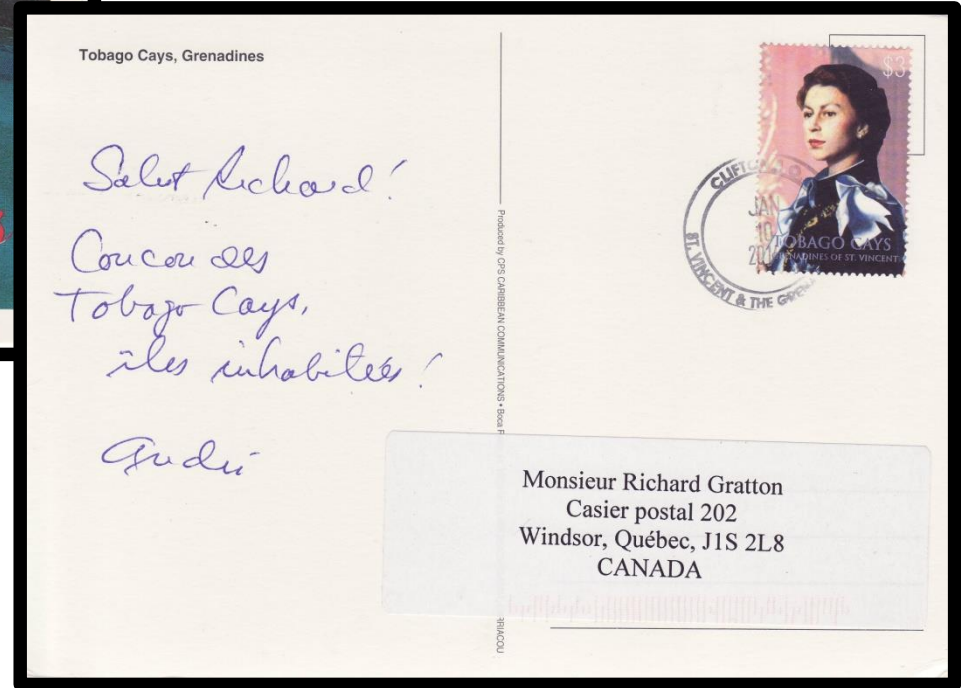 Tobago Cays, Grenadines
Salut Richard!
Coucou des
Tobago Cays,
îles inhabitées!
André
Produced by CPS CARIBBEAN COMMUNICATIONS • Boca
$3
TOBAGO CAYS
GRENADINES OF ST. VINCENT
JAN
10
ST. VINCENT & THE
Monsieur Richard Gratton
Casier postal 202
Windsor, Québec, J1S 2L8
CANADA